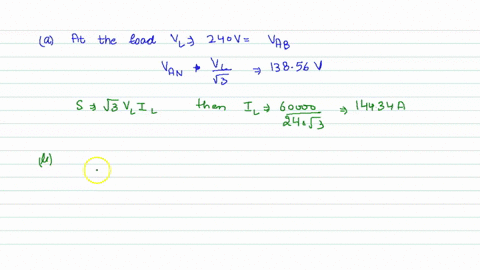 (a) At the load V_L ⇒ 240V = V_AB
V_AN * V_L/√3 ⇒ 138.56 V
S ⇒ √3 V_L I_L then I_L ⇒ 60000/240√3 ⇒ 14434A
(b)